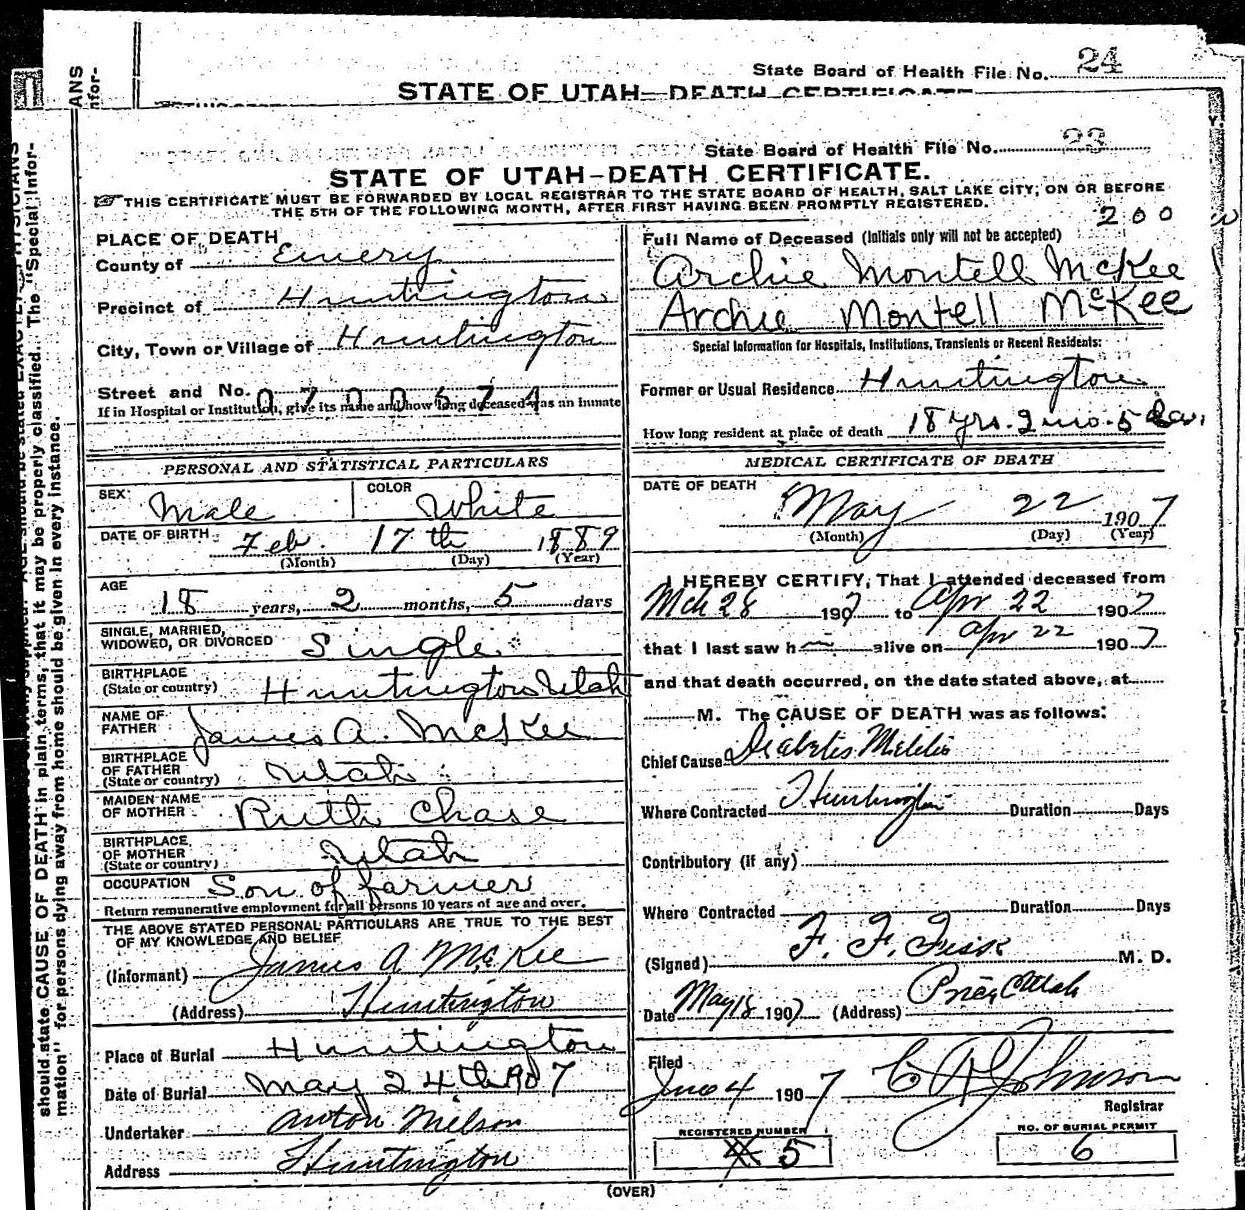 State Board of Health File No. 24
STATE OF UTAH—DEATH CERTIFICATE
State Board of Health File No. 23
STATE OF UTAH—DEATH CERTIFICATE.
THIS CERTIFICATE MUST BE FORWARDED BY LOCAL REGISTRAR TO THE STATE BOARD OF HEALTH, SALT LAKE CITY, ON OR BEFORE
THE 5TH OF THE FOLLOWING MONTH, AFTER FIRST HAVING BEEN PROMPTLY REGISTERED.
200
PLACE OF DEATH
County of Emery
Precinct of Huntington
City, Town or Village of Huntington
Street and No. 0700674
If in Hospital or Institution, give its name and how long deceased was an inmate
Full Name of Deceased (Initials only will not be accepted)
Archie Montell McKee
Archie Montell McKee
Special Information for Hospitals, Institutions, Transients or Recent Residents:
Former or Usual Residence Huntington
How long resident at place of death 18 yrs. 2 mo. 5 Das.
PERSONAL AND STATISTICAL PARTICULARS
SEX: Male COLOR White
DATE OF BIRTH Feb. 17th 1889
(Month) (Day) (Year)
AGE
18 years, 2 months, 5 days
SINGLE, MARRIED,
WIDOWED, OR DIVORCED Single
BIRTHPLACE
(State or country) Huntington Utah
NAME OF
FATHER James A. McKee
BIRTHPLACE
OF FATHER
(State or country) Utah
MAIDEN NAME
OF MOTHER Ruth Chase
BIRTHPLACE
OF MOTHER
(State or country) Utah
OCCUPATION Son of farmer
Return remunerative employment for all persons 10 years of age and over.
THE ABOVE STATED PERSONAL PARTICULARS ARE TRUE TO THE BEST
OF MY KNOWLEDGE AND BELIEF
(Informant) James A McKee
(Address) Huntington
Place of Burial Huntington
Date of Burial May 24th 1907
Undertaker Anton Nielson
Address Huntington
MEDICAL CERTIFICATE OF DEATH
DATE OF DEATH
May 22 1907
(Month) (Day) (Year)
I HEREBY CERTIFY, That I attended deceased from
Mch 28 1907 to Apr 22 1907
that I last saw h alive on Apr 22 1907
and that death occurred, on the date stated above, at
M. The CAUSE OF DEATH was as follows:
Chief Cause Diabetis Mellitis
Where Contracted Huntington Duration Days
Contributory (if any)
Where Contracted Duration Days
(Signed) F. F. Fisk M. D.
Date May 18 1907 (Address) Price Utah
Filed
June 4 1907 C A Johnson
Registrar
REGISTERED NUMBER
5
NO. OF BURIAL PERMIT
6
(OVER)
should state CAUSE OF DEATH in plain terms, that it may be properly classified. The "Special Infor-
mation" for persons dying away from home should be given in every instance.